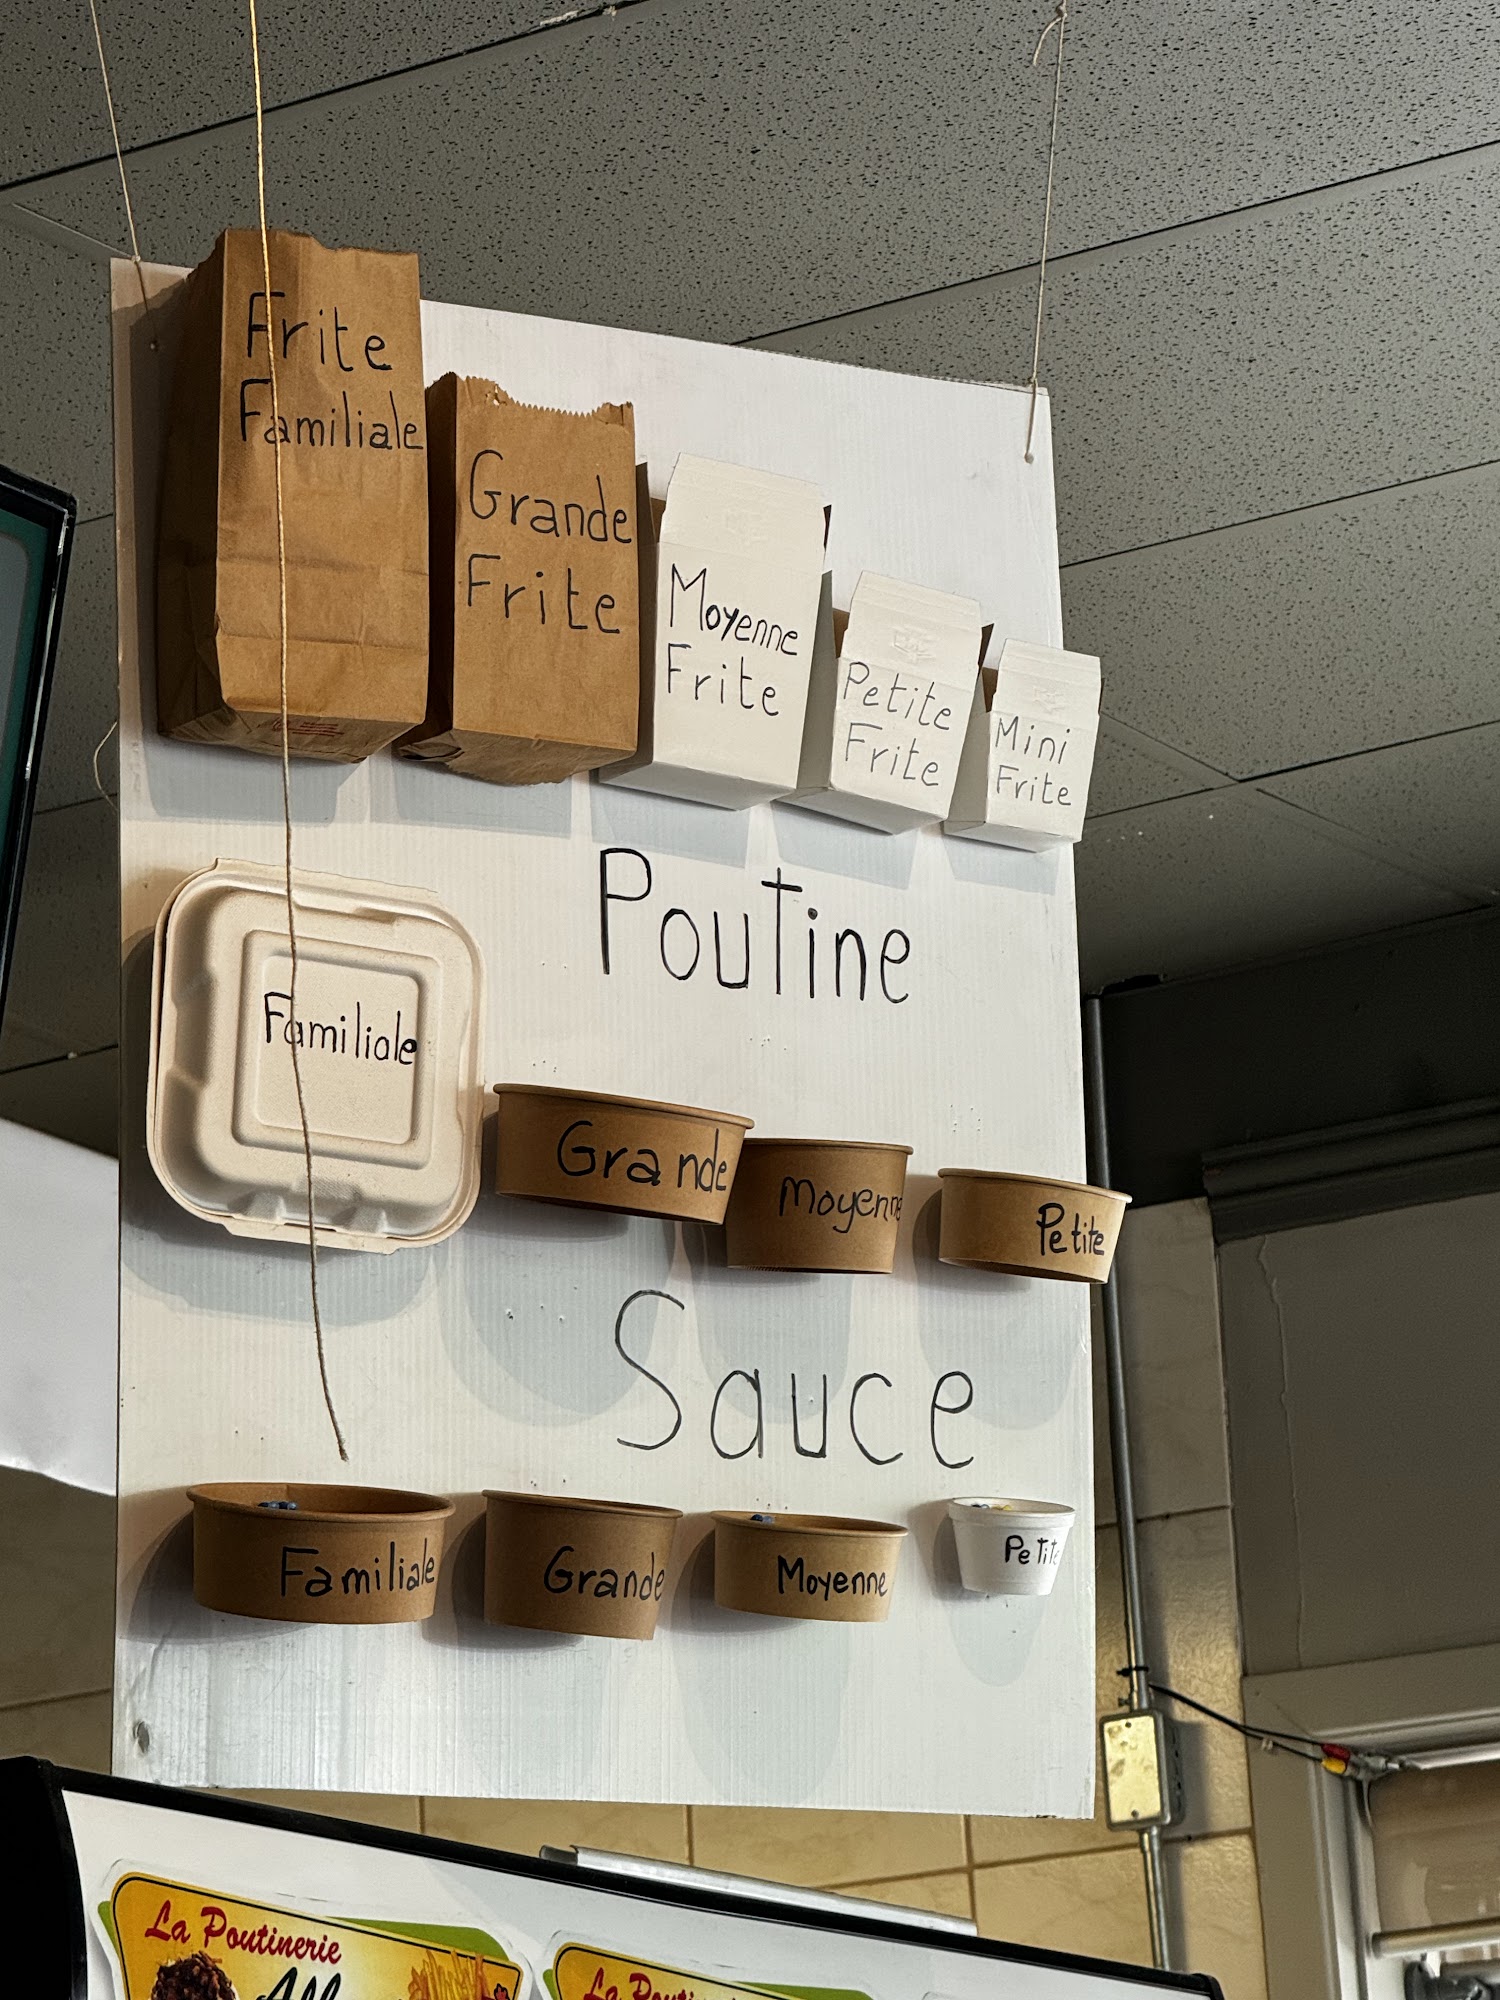 Frite
Familiale
Grande
Frite
Moyenne
Frite
Petite
Frite
Mini
Frite
Poutine
Familiale
Grande
Moyenne
Petite
Sauce
Familiale
Grande
Moyenne
Petite
La Poutinerie
La